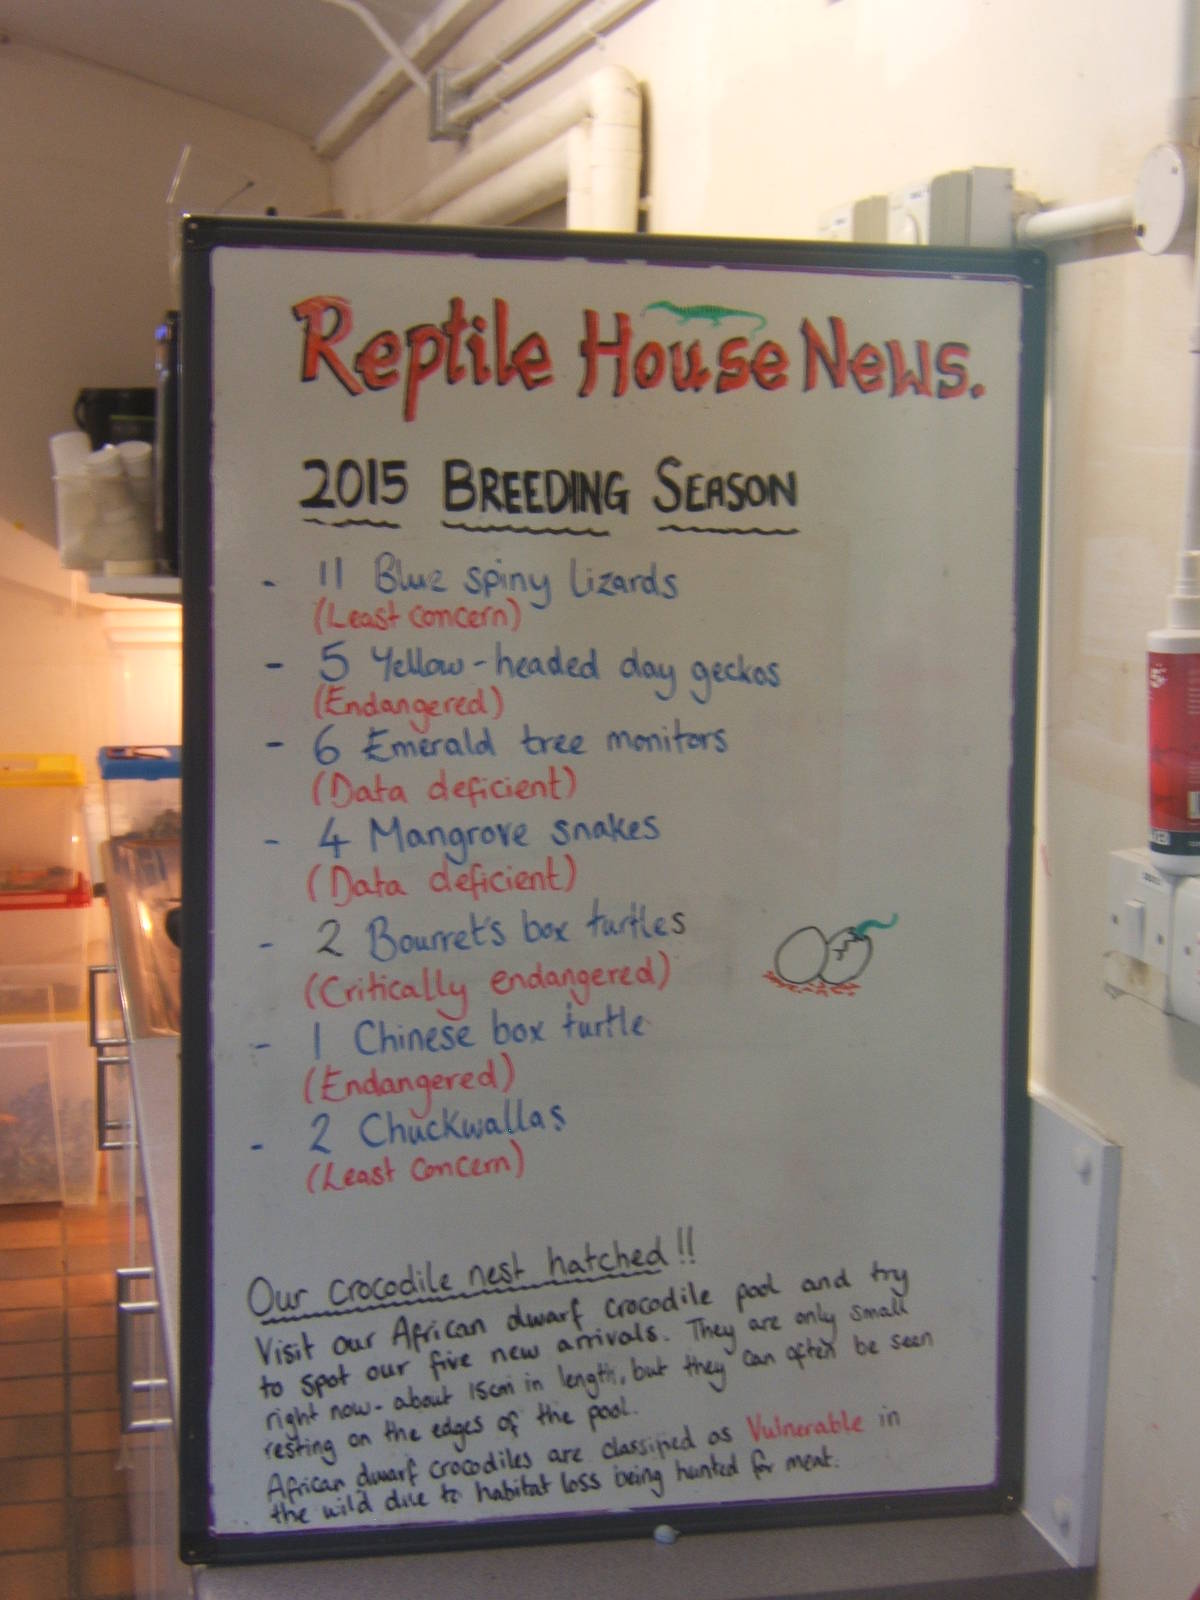 Reptile House News.
2015 BREEDING SEASON
- 11 Blue spiny lizards
(Least concern)
- 5 Yellow-headed day geckos
(Endangered)
- 6 Emerald tree monitors
(Data deficient)
- 4 Mangrove snakes
(Data deficient)
- 2 Bourret's box turtles
(Critically endangered)
- 1 Chinese box turtle
(Endangered)
- 2 Chuckwallas
(Least concern)
Our crocodile nest hatched!!
Visit our African dwarf crocodile pool and try
to spot our five new arrivals. They are only small
right now- about 15cm in length, but they can often be seen
resting on the edges of the pool.
African dwarf crocodiles are classified as Vulnerable in
the wild due to habitat loss being hunted for meat.